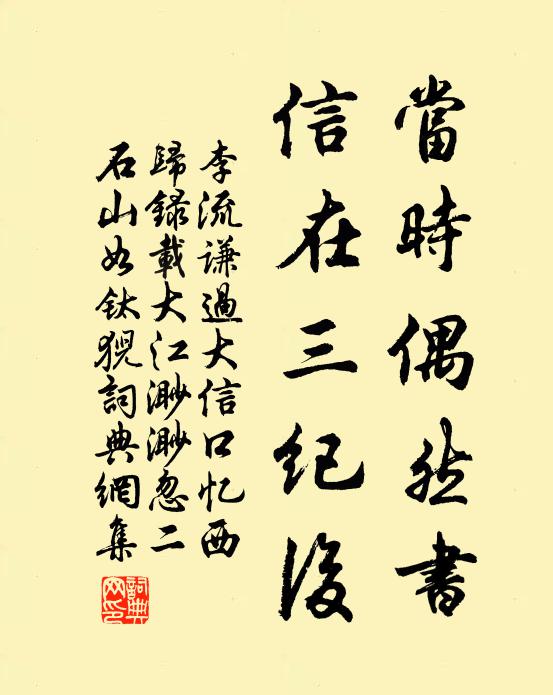 當時偶然書
信在三紀後
李流謙過大信口忆西
歸錄載大江渺渺忽二
石山如釱猊詞典網集
詞典網印